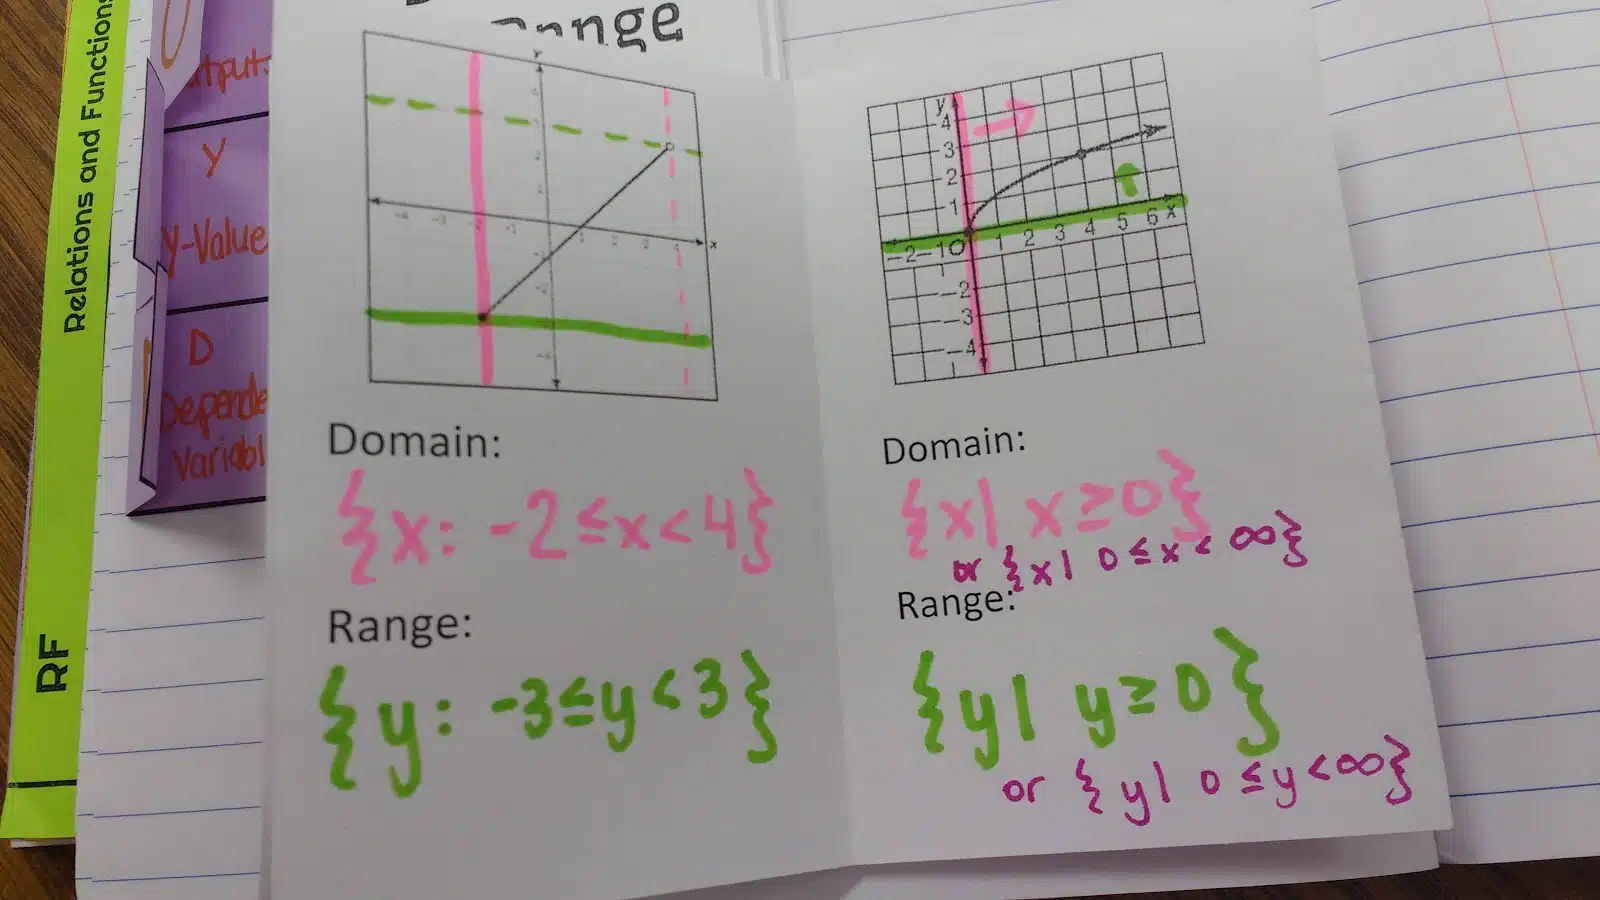 Relations and Functions
RF
Y
Y-Value
D
Range
y
x
-4 -3 -2 -1 1 2 3 4
Domain:
{x: -2≤x<4}
Range:
{y: -3≤y<3}
y
4
3
2
1
-2 -1 0 1 2 3 4 5 6 x
-2
-3
-4
Domain:
{x| x≥0}
or {x| 0≤x<∞}
Range:
{y| y≥0}
or {y| 0≤y<∞}